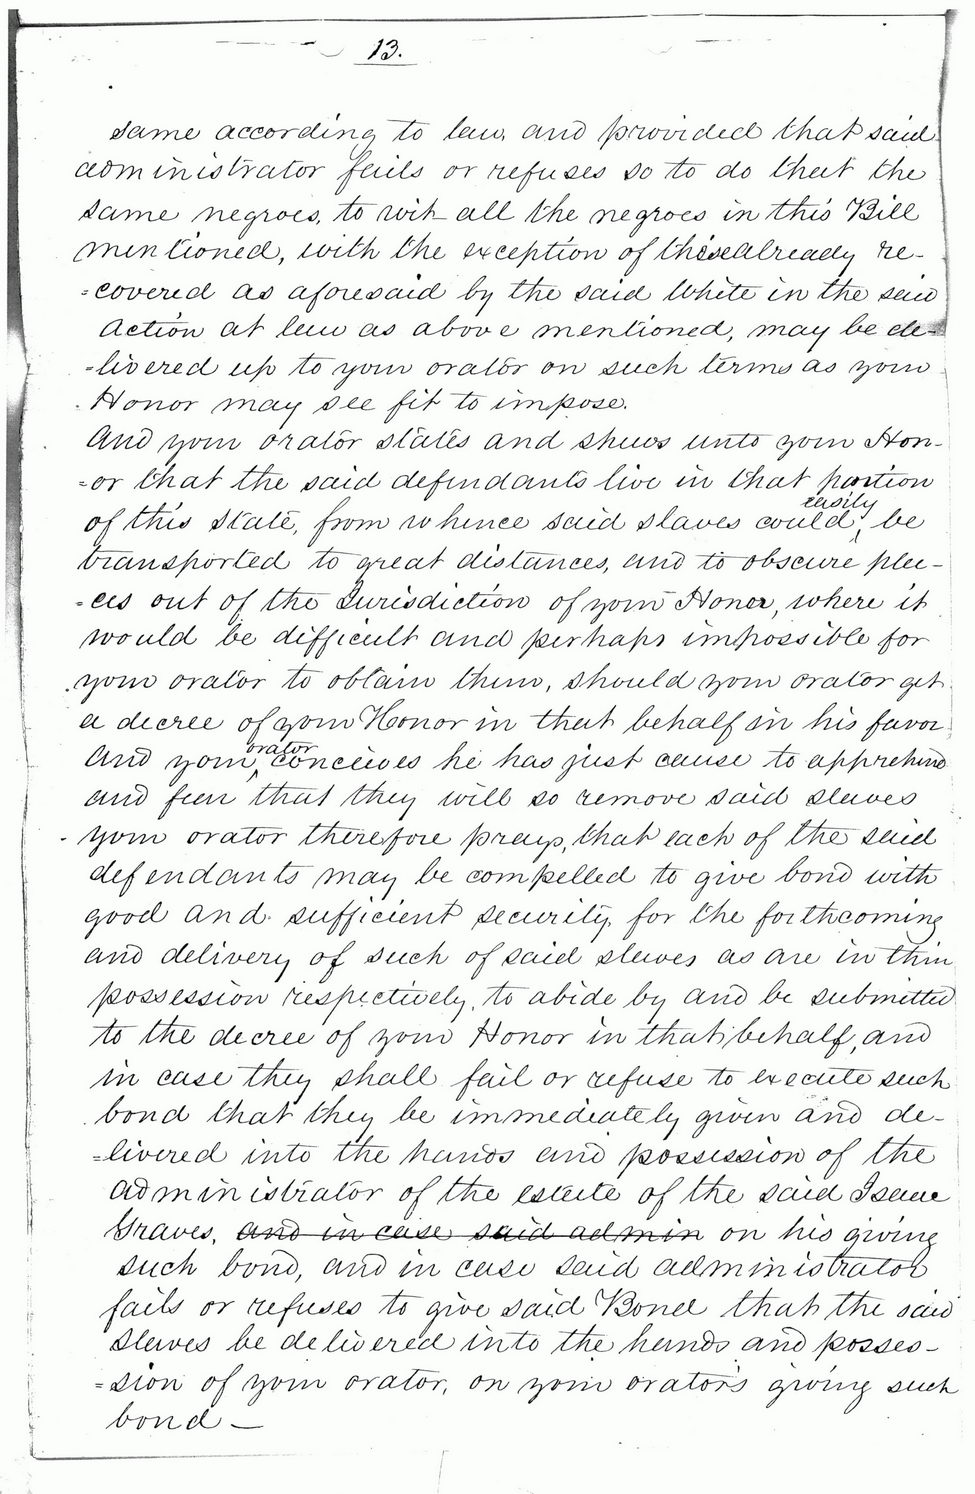 13.
same according to law, and provided that said
administrator fails or refuses so to do that the
same negroes, to wit all the negroes in this Bill
mentioned, with the exception of those already re-
=covered as aforesaid by the said White in the said
action at law as above mentioned, may be de-
-livered up to your orator on such terms as your
Honor may see fit to impose.
And your orator states and shews unto your Hon-
=or that the said defendants live in that portion
of this State, from whence said slaves could easily be
transported to great distances, and to obscure pla-
=ces out of the Jurisdiction of your Honor, where it
would be difficult and perhaps impossible for
your orator to obtain them, should your orator get
a decree of your Honor in that behalf in his favor
And your orator conceives he has just cause to apprehend
and fear that they will so remove said slaves
your orator therefore prays, that each of the said
defendants may be compelled to give bond with
good and sufficient security, for the forthcoming
and delivery of such of said slaves as are in their
possession respectively, to abide by and be submitted
to the decree of your Honor in that behalf, and
in case they shall fail or refuse to execute such
bond that they be immediately given and de-
=livered into the hands and possession of the
administrator of the estate of the said Isaac
Graves, and in case said admin on his giving
such bond, and in case said administrator
fails or refuses to give said Bond that the said
slaves be delivered into the hands and posses-
=sion of your orator, on your orators giving such
bond —